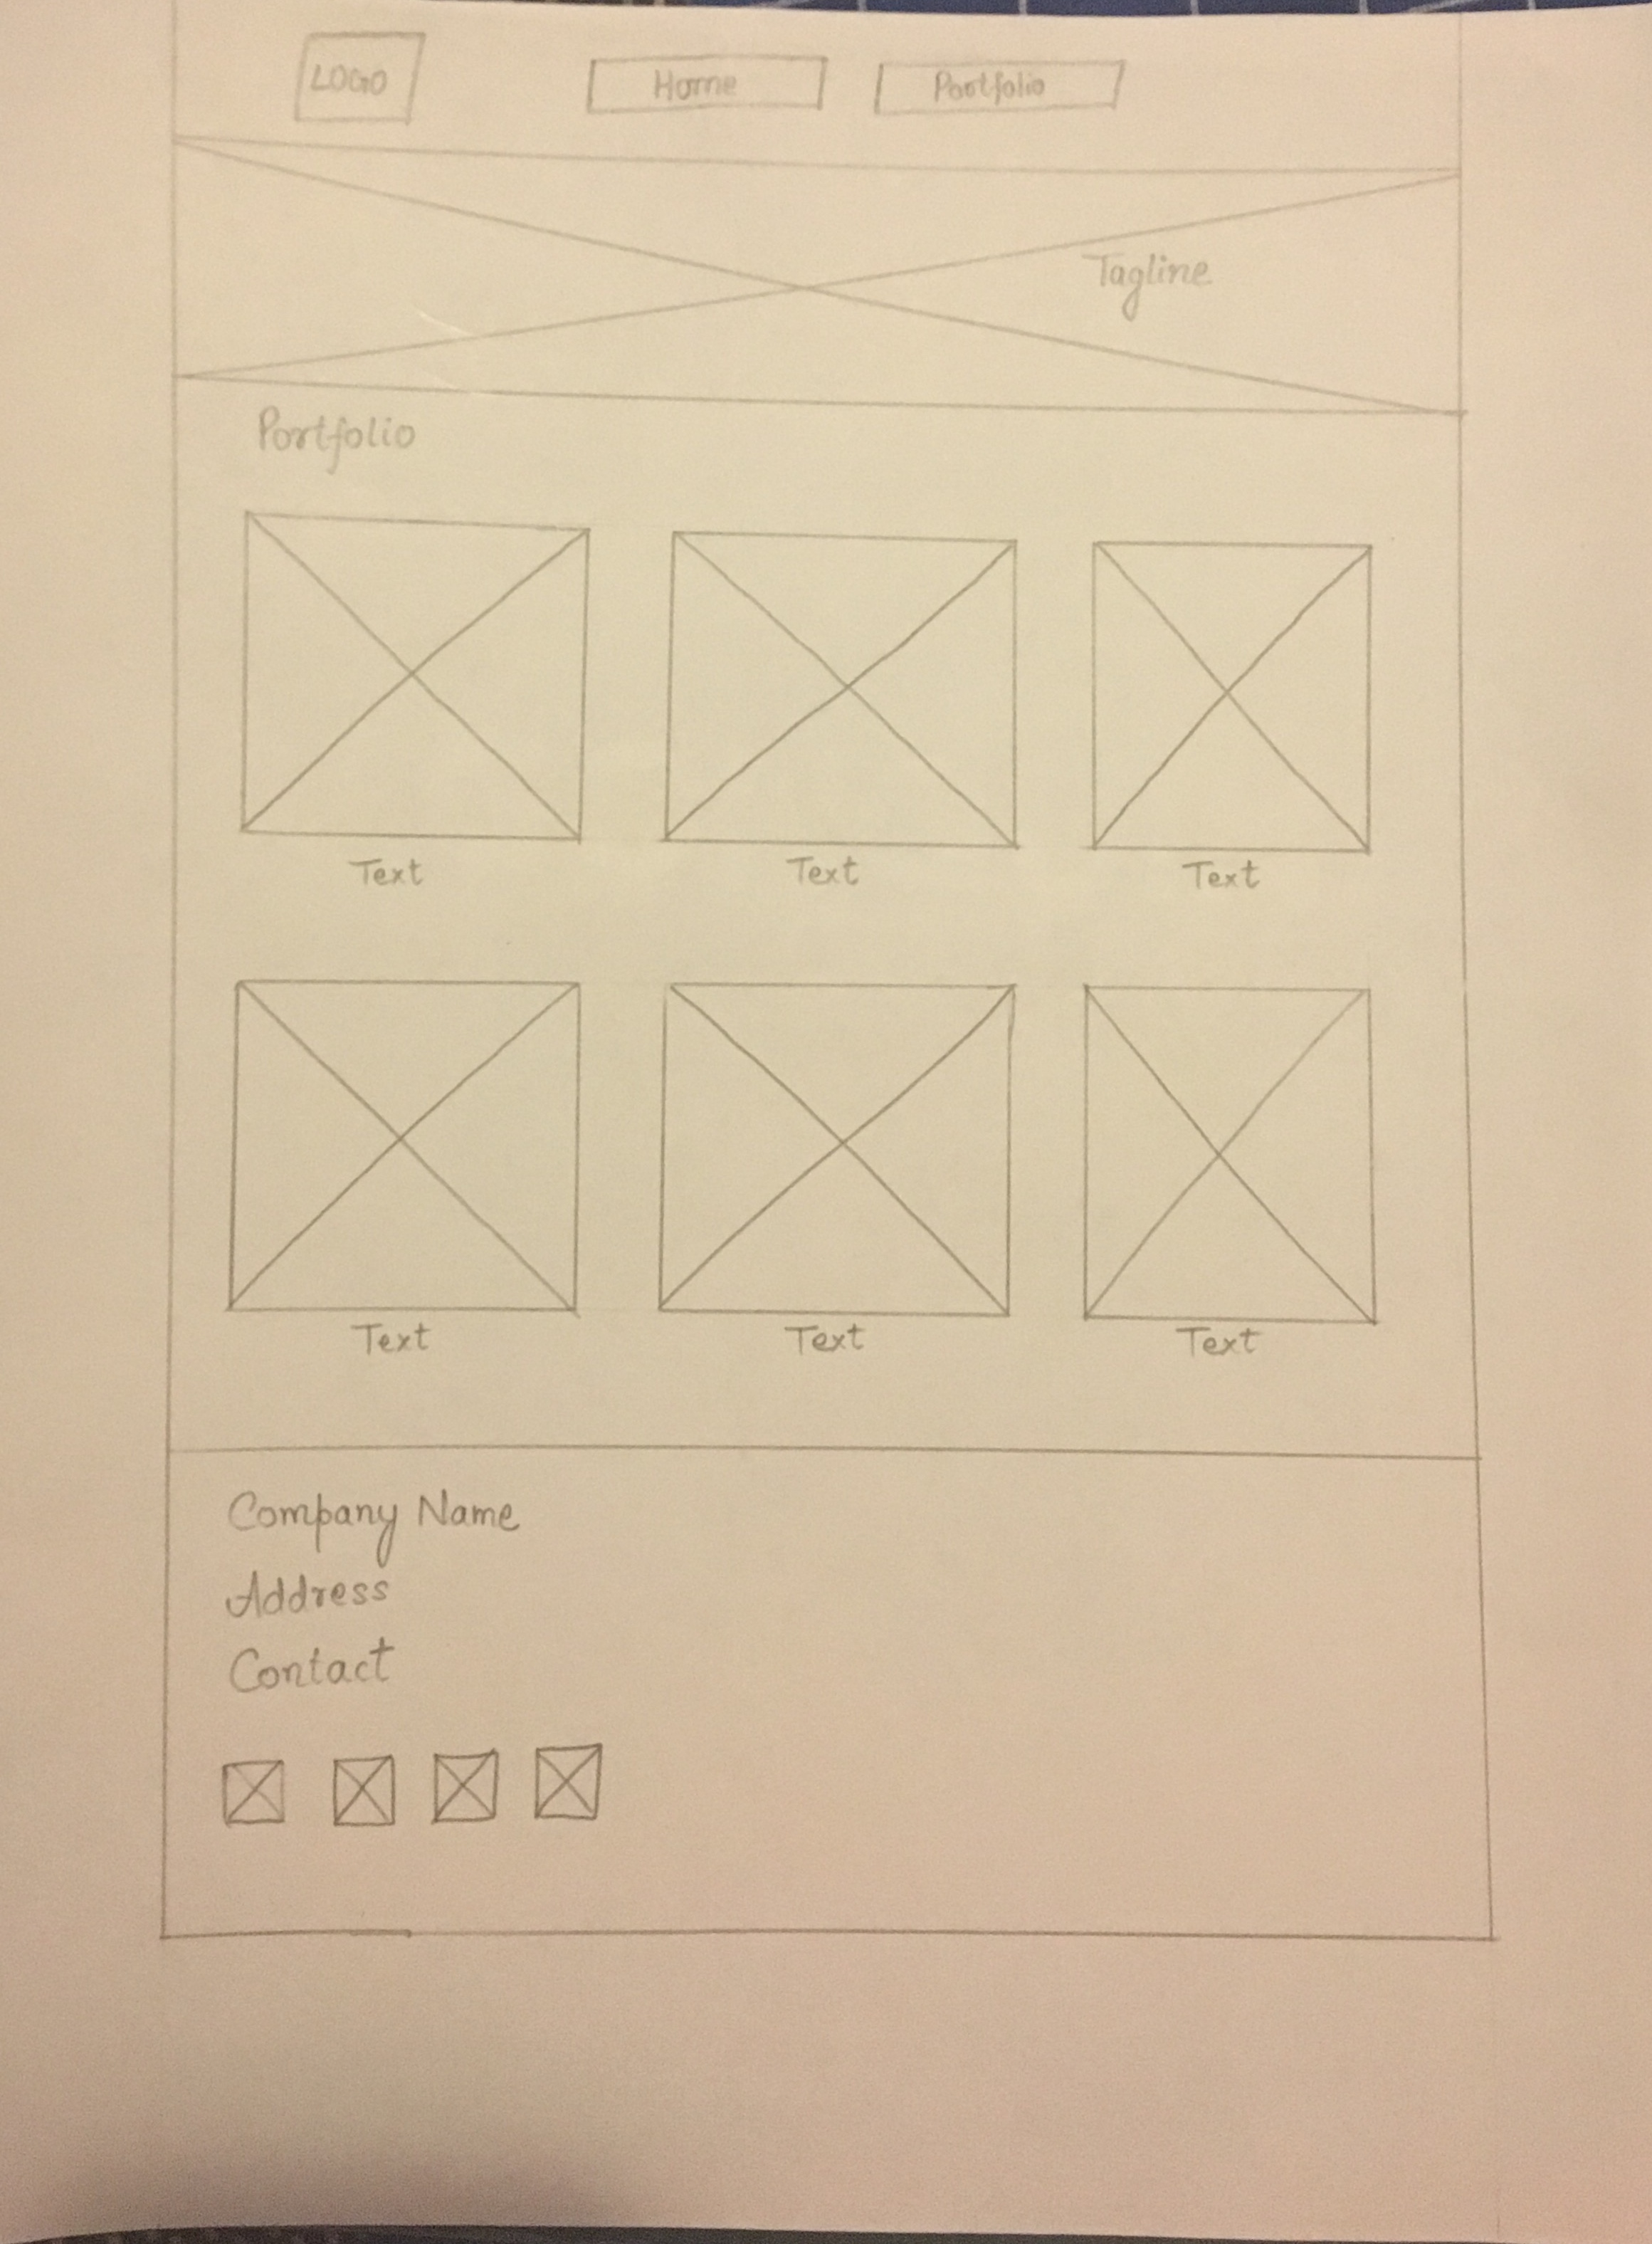 LOGO Home Portfolio
Tagline
Portfolio
Text Text Text
Text Text Text
Company Name
Address
Contact